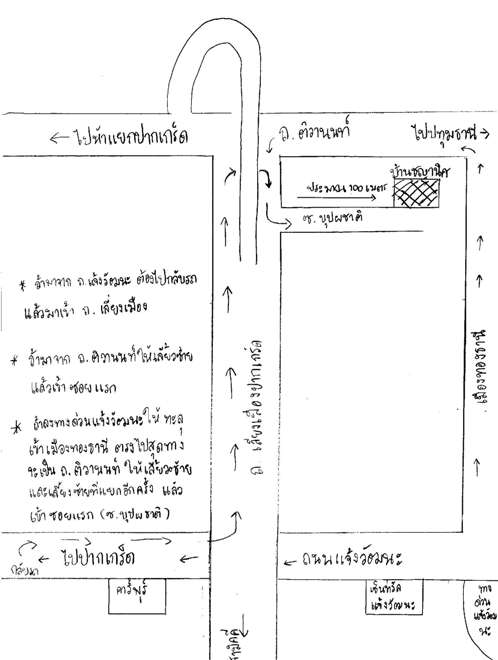 ← ไปห้าแยกปากเกร็ด
ถ. ติวานนท์
ไปปทุมธานี →
บ้านชญานิศ
ประมาณ 100 เมตร
ซ. บุปผชาติ
* ถ้ามาจาก ถ.แจ้งวัฒนะ ต้องไปกลับรถ
แล้วมาเข้า ถ. เลี่ยงเมือง
* ถ้ามาจาก ถ.ติวานนท์ให้เลี้ยวซ้าย
แล้วเข้าซอยแรก
* ถ้าลงทางด่วนแจ้งวัฒนะ ให้ ทะลุ
เข้าเมืองทองธานี ตรงไปสุดทาง
จะเป็น ถ.ติวานนท์ ให้เลี้ยวซ้าย
และเลี้ยวซ้ายที่แยกอีกครั้ง แล้ว
เข้าซอยแรก (ซ.บุปผชาติ)
ถ เลี่ยงเมืองปากเกร็ด
เมืองทองธานี
กลับมา
← ไปปากเกร็ด ←
← ถนนแจ้งวัฒนะ
คาร์ฟูร์
เซ็นทรัล
แจ้งวัฒนะ
ทาง
ด่วน
แจ้งวัฒ
นะ